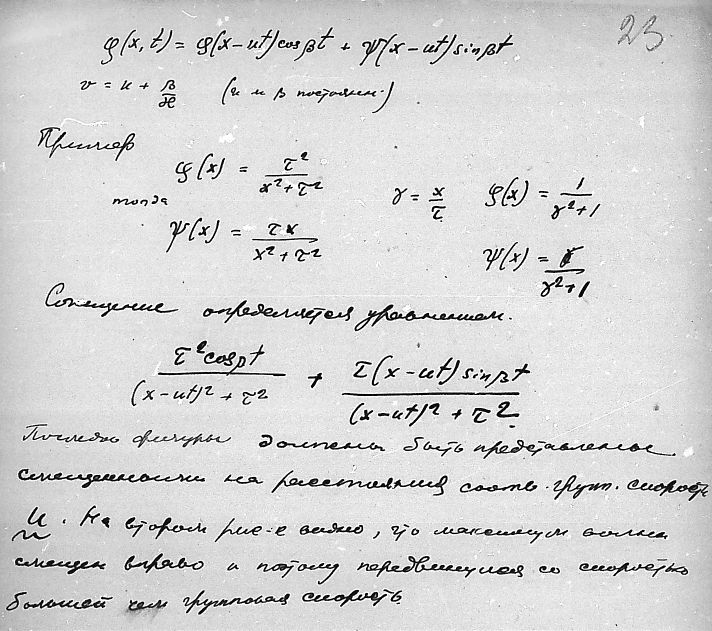 23
φ(x, t) = φ(x-ut) cosβt + ψ(x-ut) sinβt
v = u + β/ϰ (u и β постоянн.)
Пример
φ(x) = τ²/(x²+τ²) γ = x/τ φ(x) = 1/(γ²+1)
тогда
ψ(x) = τx/(x²+τ²) ψ(x) = γ/(γ²+1)
Смещение определяется уравнением.
τ²cosβt/((x-ut)²+τ²) + τ(x-ut)sinβt/((x-ut)²+τ²)
фигуры должны быть представлены
смещенными на расстояния соотв. групп. скорости
u. На втором рис-е видно, что максимум волны
смещен вправо и потому передвинулся со скоростью
большей чем групповая скорость.